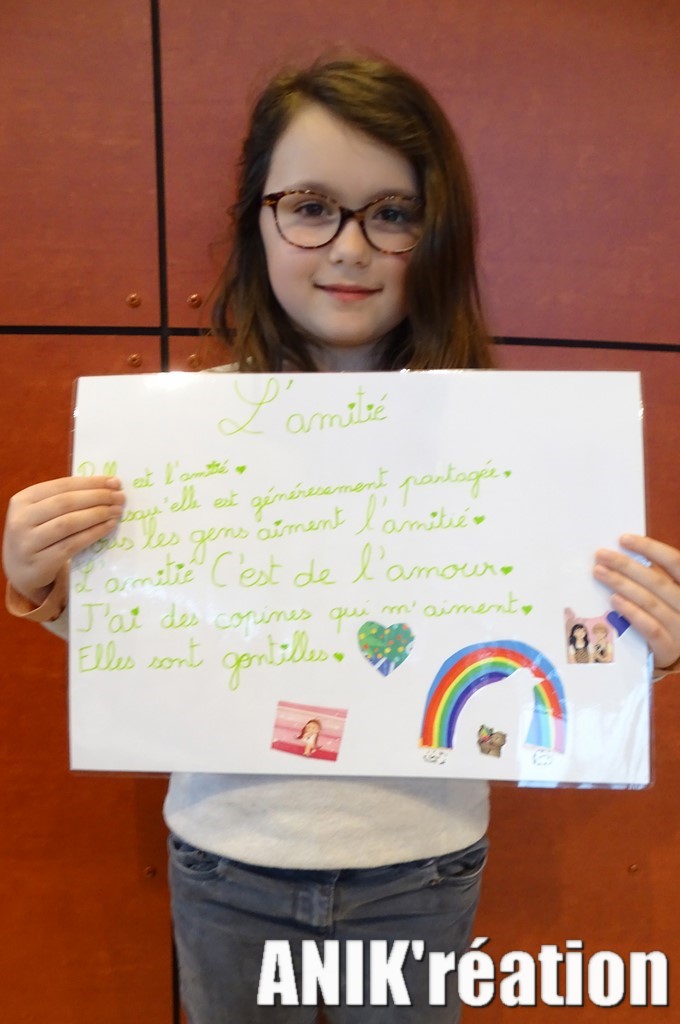 L'amitié
est l'amitié
est génére­sement partagée
les gens aiment l'amitié
L'amitié C'est de l'amour
J'ai des copines qui m'aiment
Elles sont gentilles
ANIK'réation